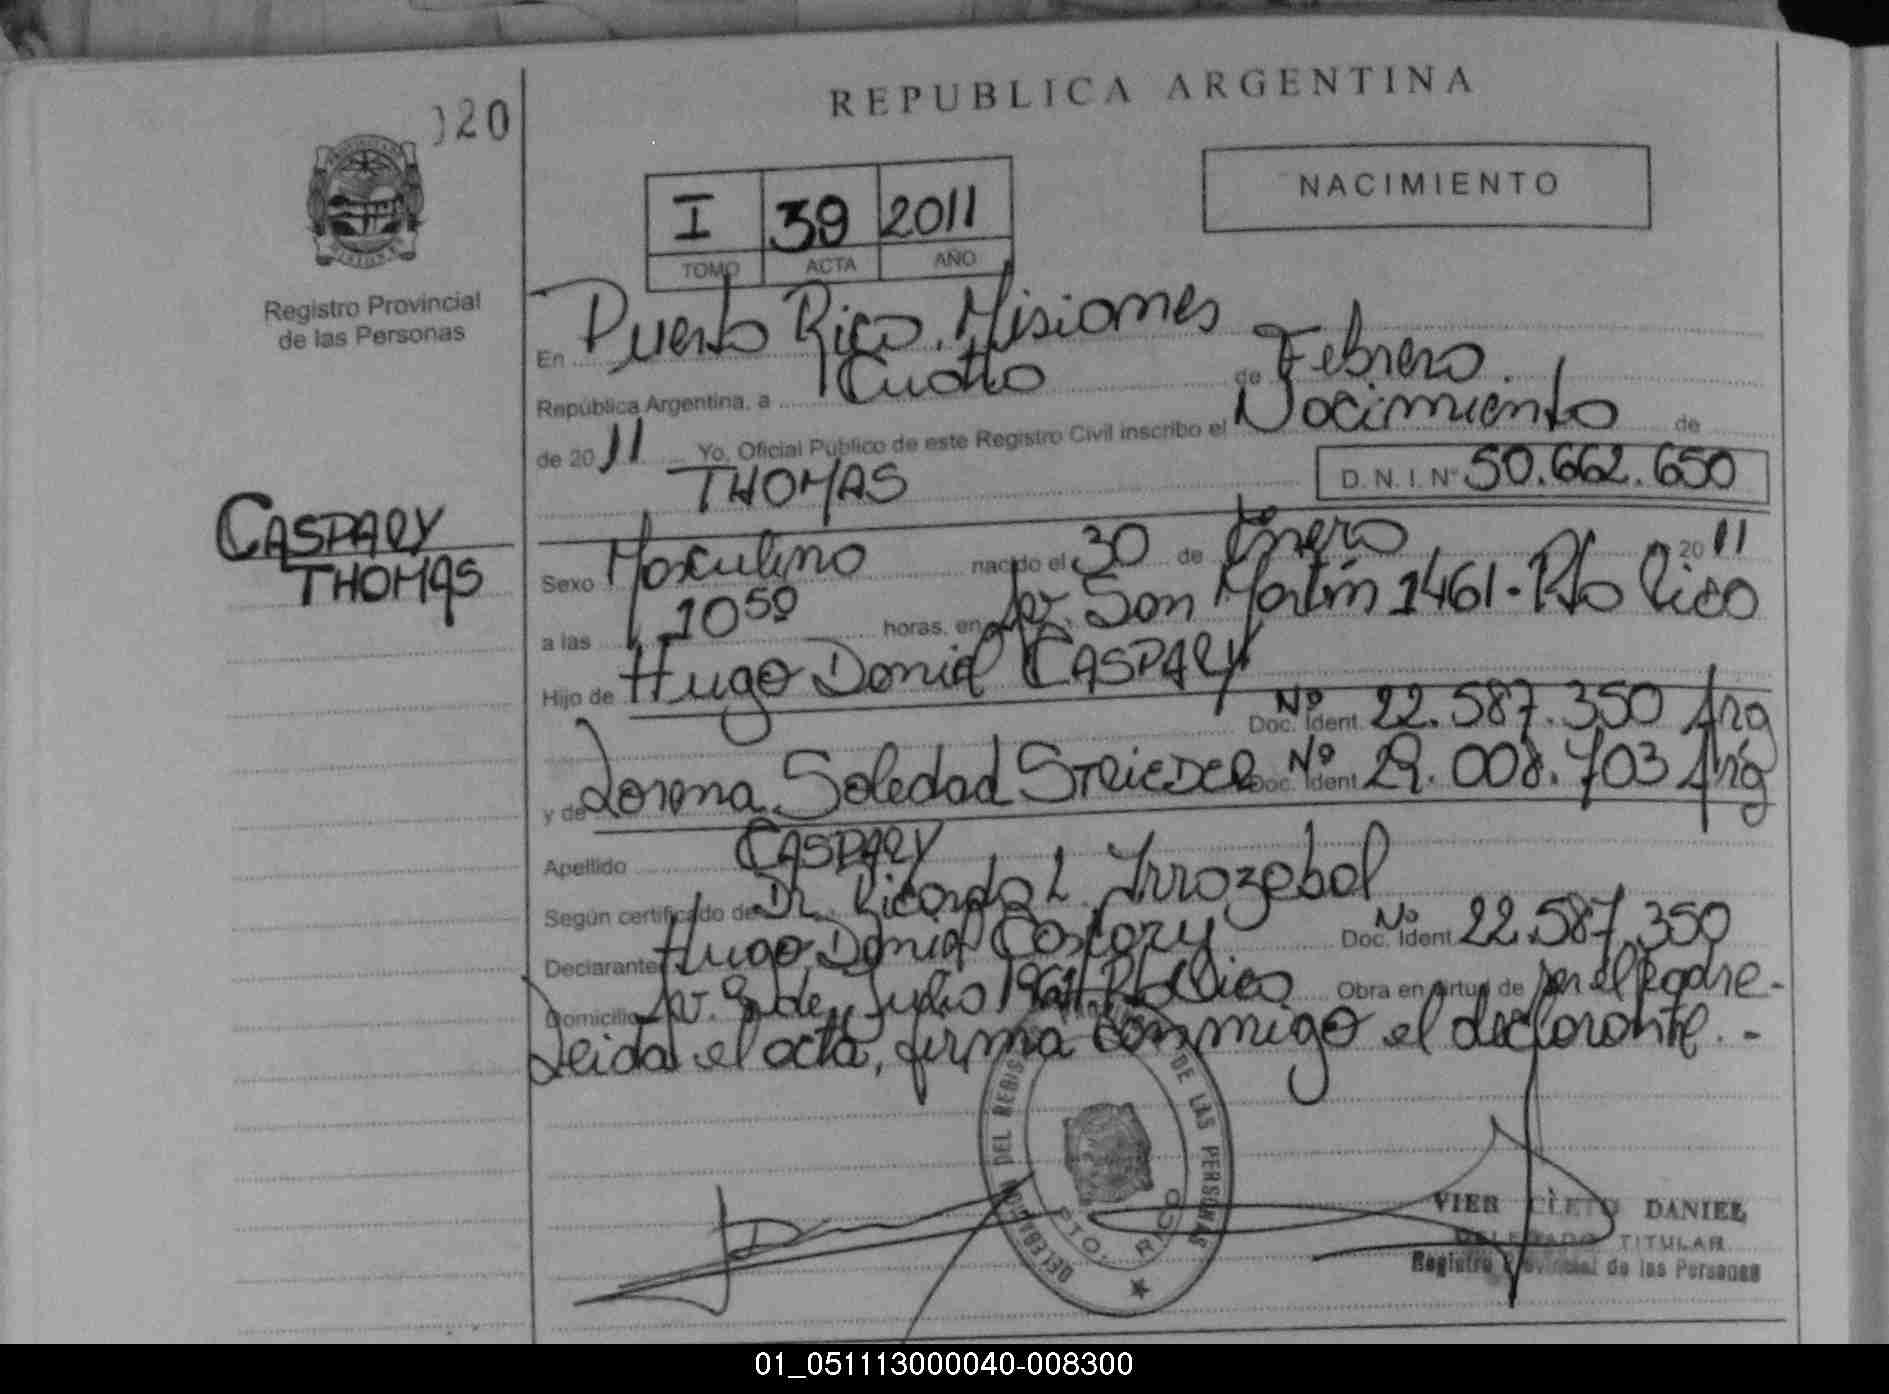 020
REPUBLICA ARGENTINA
NACIMIENTO
I 39 2011
TOMO ACTA AÑO
Registro Provincial
de las Personas
En Puerto Rico, Misiones
República Argentina, a Cuatro de Febrero
de 2011 Yo, Oficial Público de este Registro Civil inscribo el Nacimiento de
THOMAS D. N. I. Nº 50.662.650
CASPARY
THOMAS
Sexo Masculino nacido el 30 de Enero 2011
a las 10⁵⁰ horas, en Av. San Martín 1461 - Pto Rico
Hijo de Hugo Daniel CASPARY
Doc. Ident. Nº 22.587.350 Arg
y de Lorena Soledad STRIEDER Doc. Ident. Nº 29.008.703 Arg
Apellido CASPARY
Según certificado de Dr. Ricardo L. Irrazabal
Declarante Hugo Daniel Caspary Doc. Ident. Nº 22.587.350
Domicilio Av. 9 de Julio Pto Rico Obra en virtud de ser el padre.-
Leida el acta, firma conmigo el declarante.-
DELEGACION DEL REGIS DE LAS PERSONAS
PTO. RICO
VIER CLETO DANIEL
DELEGADO TITULAR
Registro Provincial de las Personas
01_051113000040-008300